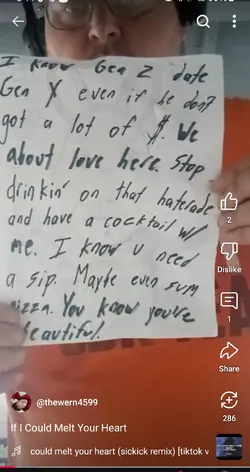 I know Gen Z date
Gen X even if he don't
got a lot of $. We
about love here. Stop
drinkin' on that haterade
and have a cocktail w/
me. I know u need
a sip. Maybe even sum
pizza. You know you're
beautiful.
2
Dislike
1
Share
286
@thewern4599
If I Could Melt Your Heart
could melt your heart (sickick remix) [tiktok v